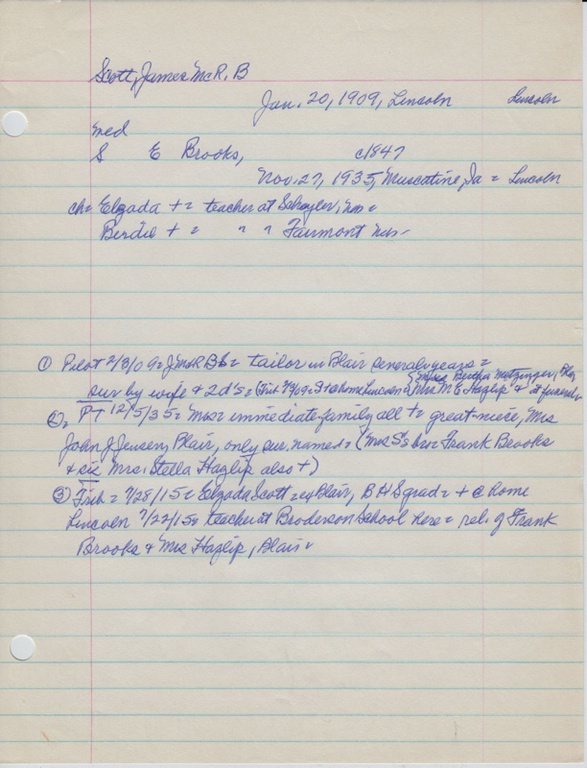 Scott, James McR. B
Jan. 20, 1909, Lincoln Lincoln
med
S E Brooks, c1847
Nov. 27, 1935, Muscatine, Ia = Lincoln
ch = Elgada + = teacher at Schuyler,
Birdie + = " " Fairmont
① Pilot 2/3/09 = J McR B = tailor in Blair several years =
sur by wife & 2 d's = (Trib home Lincoln = Bertha Metzinger, Mrs M E Hazlip & at funeral
②, PT 12/5/35 = immediate family all + = great-niece, Mrs
John J Jensen, Blair, only sur. named = (Mrs S's bro = Frank Brooks
& sis Mrs. Stella Hazlip also +)
③ Trib = 7/28/15 = Elgada Scott = ex Blair, BHS grad = + @ home
Lincoln 7/22/15 = teacher at Broderson School here = rel. of Frank
Brooks & Mrs Hazlip, Blair